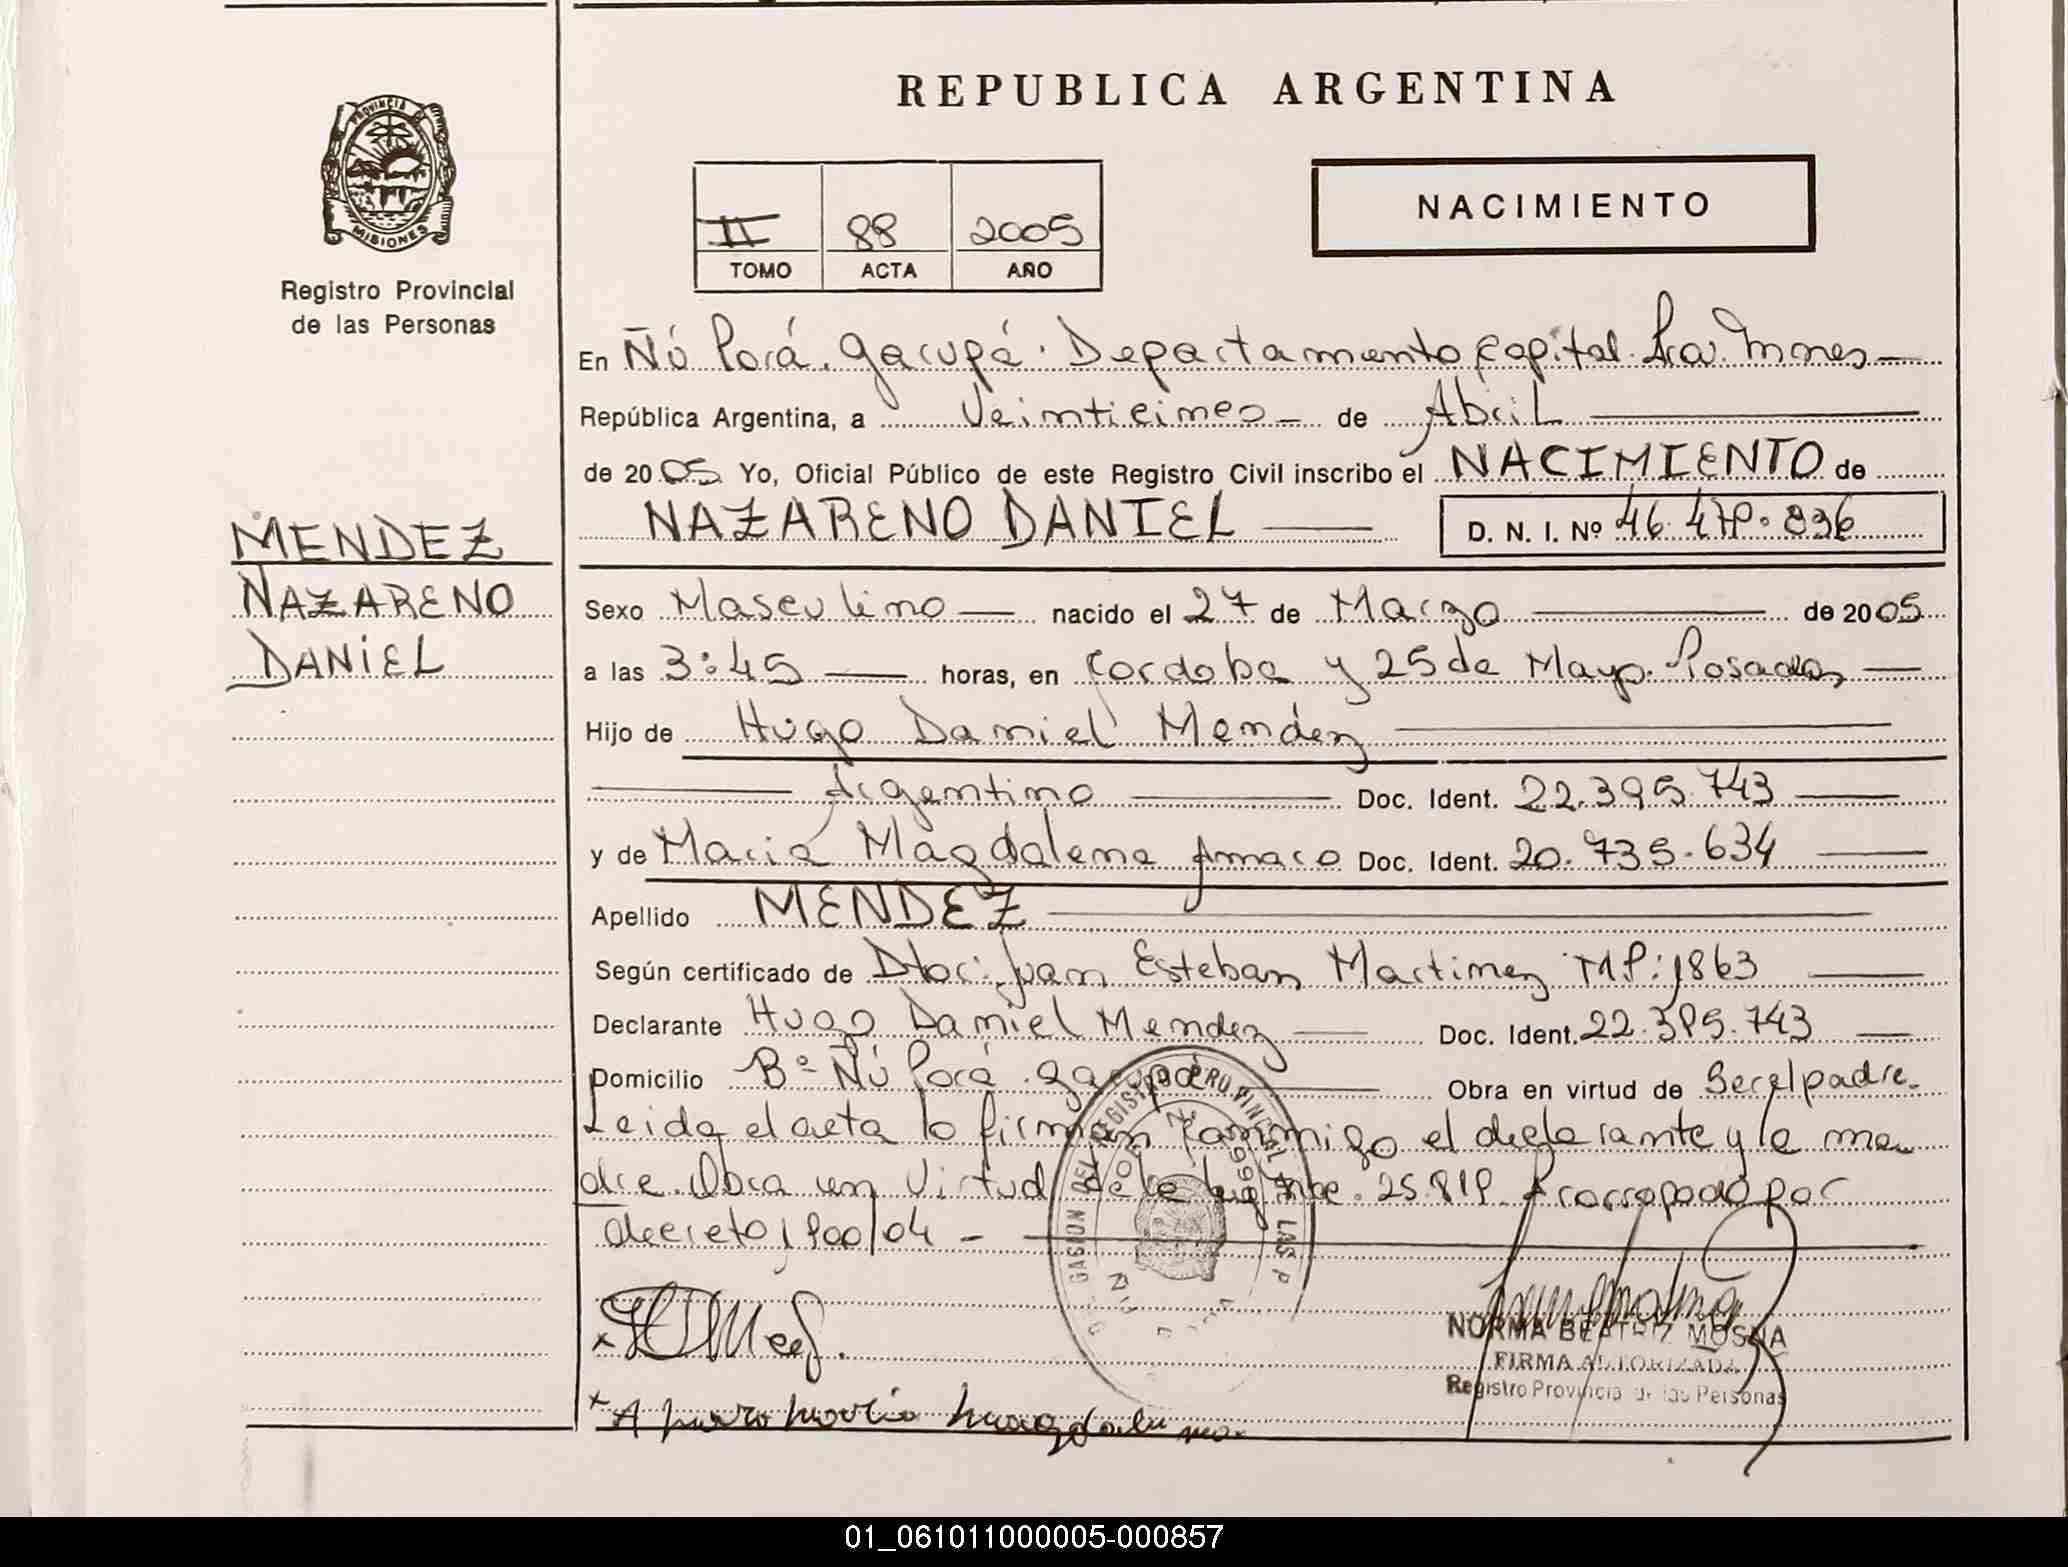 REPUBLICA ARGENTINA
PROVINCIA DE
MISIONES
Registro Provincial
de las Personas
II 88 2005
TOMO ACTA AÑO
NACIMIENTO
En Ñú Porá. Garupá. Departamento Capital.
República Argentina, a de Abril
de 2005 Yo, Oficial Público de este Registro Civil inscribo el NACIMIENTO de
NAZARENO DANIEL
D. N. I. Nº
MENDEZ
NAZARENO
DANIEL
Sexo Masculino nacido el 27 de Marzo de 2005
a las 3:45 horas, en Cordoba y 25 de Mayo. Posadas
Hijo de Hugo Daniel Mendéz
Argentino Doc. Ident. 22.395.743
y de Maria Magdalena Doc. Ident. 20.735.634
Apellido MENDEZ
Según certificado de Juan Esteban Martinez M.P: 1863
Declarante Hugo Daniel Mendez Doc. Ident. 22.395.743
Domicilio Bº Ñú Porá. Garupá Obra en virtud de Ser el padre.
Leida el acta la firman conmigo el declarante y la ma
dre. Obra en Virtud de la 25.819 por
decreto 1900/04 -
DEL REGISTRO PROVINCIAL LAS P
NORMA BEATRIZ MOSNA
FIRMA AUTORIZADA
Registro Provincia de las Personas
01_061011000005-000857